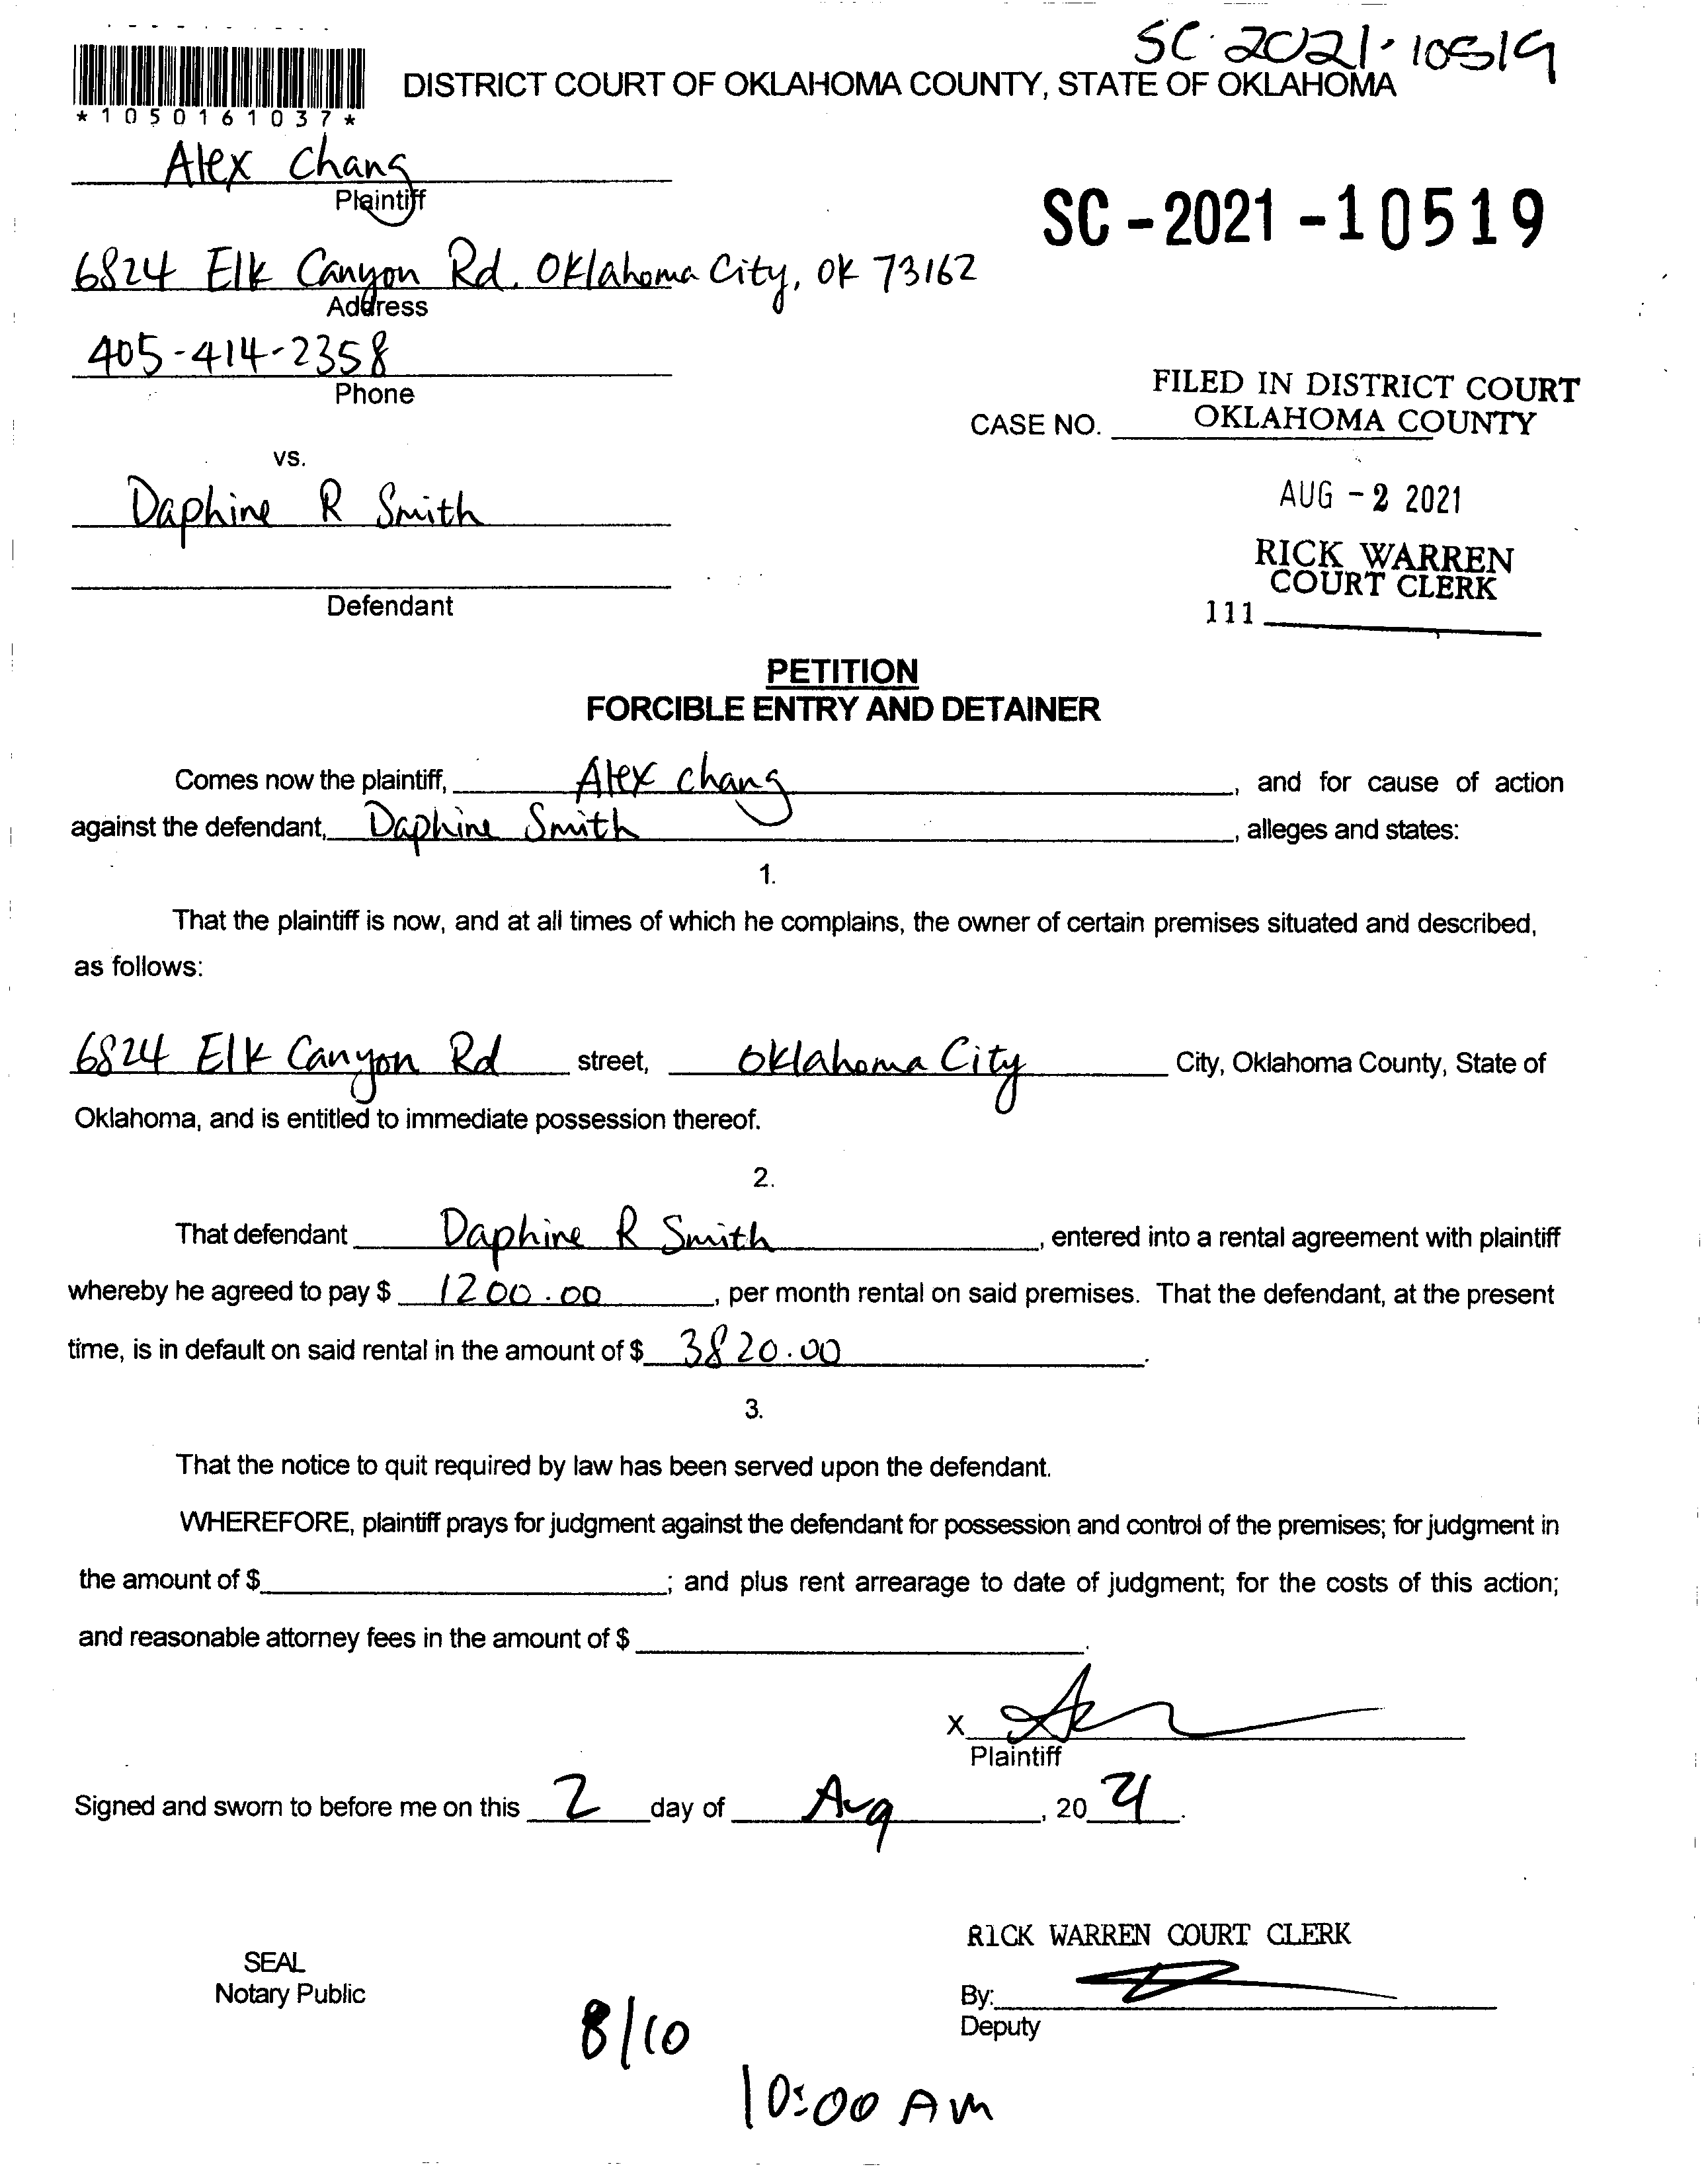 SC-2021-10519
DISTRICT COURT OF OKLAHOMA COUNTY, STATE OF OKLAHOMA
*1050161037*
Alex Chang
Plaintiff
SC-2021-10519
6824 Elk Canyon Rd. Oklahoma City, OK 73162
Address
405-414-2358
Phone
FILED IN DISTRICT COURT
OKLAHOMA COUNTY
CASE NO.
vs.
AUG -2 2021
Daphine R Smith
RICK WARREN
COURT CLERK
Defendant
111
PETITION
FORCIBLE ENTRY AND DETAINER
Comes now the plaintiff, Alex Chang, and for cause of action
against the defendant, Daphine Smith, alleges and states:
1.
That the plaintiff is now, and at all times of which he complains, the owner of certain premises situated and described,
as follows:
6824 Elk Canyon Rd street, Oklahoma City City, Oklahoma County, State of
Oklahoma, and is entitled to immediate possession thereof.
2.
That defendant Daphine R Smith, entered into a rental agreement with plaintiff
whereby he agreed to pay $ 1200.00, per month rental on said premises. That the defendant, at the present
time, is in default on said rental in the amount of $ 3820.00.
3.
That the notice to quit required by law has been served upon the defendant.
WHEREFORE, plaintiff prays for judgment against the defendant for possession and control of the premises; for judgment in
the amount of $ ; and plus rent arrearage to date of judgment; for the costs of this action;
and reasonable attorney fees in the amount of $ .
X
Plaintiff
Signed and sworn to before me on this 2 day of Aug, 2021.
RICK WARREN COURT CLERK
SEAL
Notary Public
By:
Deputy
8/10
10:00 AM